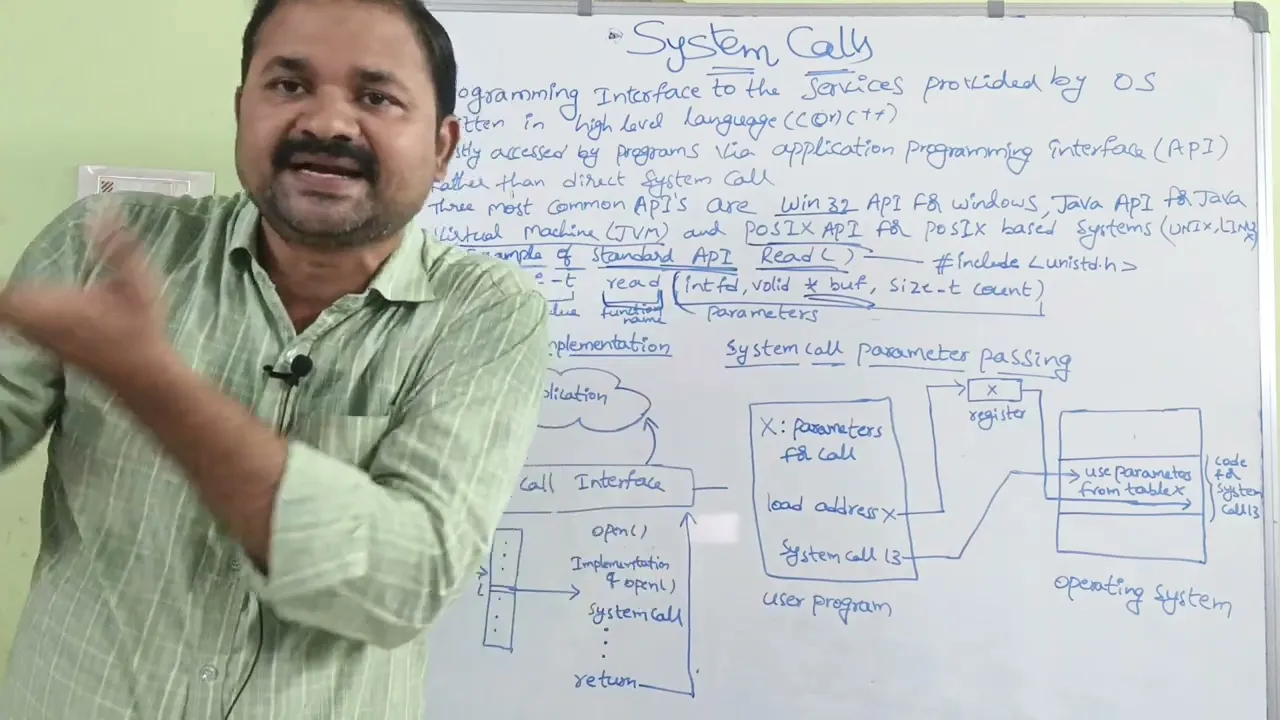 System Calls
ogramming Interface to the services provided by OS
itten in high level language (C (or) C++)
stly accessed by programs via application programming interface (API)
rather than direct system call
Three most common API's are Win 32 API for windows, Java API for Java
Virtual Machine (JVM) and POSIX API for POSIX based systems (UNIX, LINUX)
Example of Standard API Read() #include <unistd.h>
e-t read (int fd, void * buf, size-t count)
lue function name parameters
mplementation
plication
call Interface
open()
Implementation
of open()
system call
return
i
System call parameter passing
X
register
X: parameters
for call
load address X
system call 13
user program
use parameter
from table X
code
for
system
call 13
operating system